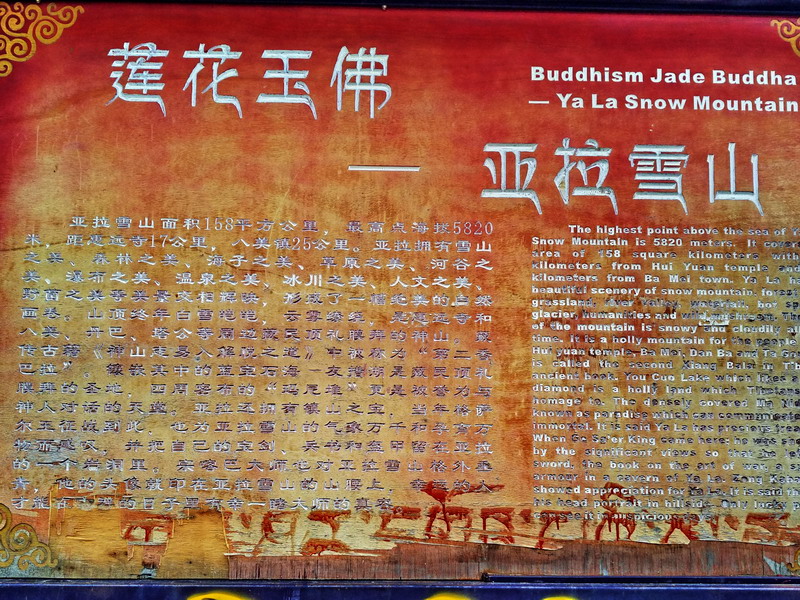 莲花玉佛
— 亚拉雪山
Buddhism Jade Buddha
— Ya La Snow Mountain
亚拉雪山面积158平方公里，最高点海拔5820
米，距惠远寺17公里，八美镇25公里。亚拉拥有雪山
之美、森林之美、海子之美、草原之美、河谷之
美、瀑布之美、温泉之美、冰川之美、人文之美、
野趣之美等美景交相辉映，形成了一幅绝美的自然
画卷。山顶终年白雪皑皑，云雾缭绕，是惠远寺和
八美、丹巴、塔公等周边藏民顶礼膜拜的神山。藏
传古籍《神山走易入解脱之道》中被称为“第二香
巴拉”。镶嵌其中的蓝宝石海－友措湖是藏民顶礼
膜拜的圣地，四周密布的“玛尼堆”更是被誉为与
神人对话的天堂。亚拉还拥有镇山之宝，当年格萨
尔王征战到此，也为亚拉雪山的气象万千和学高万
物而感叹，并把自己的宝剑、兵书和盔甲留在亚拉
的一个岩洞里。宗喀巴大师也对亚拉雪山格外垂
青，他的头像就印在亚拉雪山的山腰上，幸运的人
才能在 的日子里有幸一睹大师的真容
The highest point above the sea of
Snow Mountain is 5820 meters. It cove
area of 158 square kilometers with
kilometers from Hui Yuan temple and
kilometers from Ba Mei town. Ya La ha
beautiful scenery of snow mountain, fores
grassland, river valley, waterfall, hot sp
glacier, humanities and wild
of the mountain is snowy and cloudily al
time. It is a holly mountain for the people
Hui yuan temple, Ba Mei, Dan Ba and Ta Go
is called the second Xiang Bala in Ti
ancient book. You Cuo Lake which likes a
diamond is a holly land which Tibetan
homage to. The dense covered Ma Ni
known as paradise which can communicate
immortal. It is said Ya La has precious
When Ge Sa'er King come here, he was
by the significant views so that he left
sword, the book on the art of war, a s
armour in a cavern of Ya La. Zong Kaba
showed appreciation for Ya La. It is said th
his head portrait in hillside. Only lucky p
can see it in auspicious